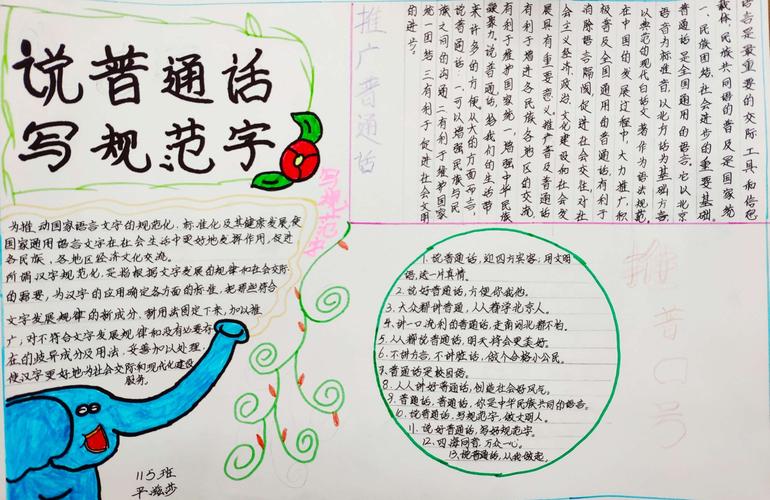 说普通话
写规范字
为推动国家语言文字的规范化,标准化及其健康发展,使
国家通用语言文字在社会生活中更好地发挥作用,促进
各民族、各地区经济文化交流。
所谓汉字规范化,是指根据文字发展的规律和社会交际
的需要,为汉字的应用确定各方面的标准,把那些符合
文字发展规律的新成分、新用法固定下来,加以推
广,对不符合文字发展规律和没有必要存
在的歧异成分及用法,妥善加以处理,
使汉字更好地为社会交际和现代化建设
服务。
115班
推广普通话
写规范字
语言是最重要的交际工具和信息
载体,民族共同语的普及是国家统
一、民族团结、社会进步的重要基础。
普通话是全国通用的语言。它以北京
语音为标准音,以北方话为基础方言,
以典范的现代白话文著作为语法规范。
在中国的发展过程中,大力推广,积
极普及全国通用的普通话,有利于
消除语言隔阂,促进社会交往,对社
会主义经济、政治、文化建设和社会发
展具有重要意义。推广普及普通话
有利于增进各民族各地区的交流,
有利于维护国家统一,增强中华民族
凝聚力。说普通话,给我们的生活带
来许多的方便。从大的方面而言,
说普通话:一可以增强民族与民
族之间的沟通二有利于维护国家
统一团结三有利于促进社会文明
的进步。
推普口号
1.说普通话,迎四方宾客;用文明
语,送一片真情。
2.说好普通话,方便你我他。
3.大众耕讲普通,人人精学北京人。
4.讲一口流利的普通话,走南闯北都不怕。
5.人人都说普通话,明天将会更美好。
6.不讲方言,不讲脏话,做个合格小公民。
7.普通话是校园语。
8.人人讲好普通话,创造社会好风气。
9.普通话,普通话,你是中华民族共同的语言。
10.说普通话,写规范字,做文明人。
11.说好普通话,写好规范字。
12.四海同音,万众一心。
13.说普通话,从我做起。